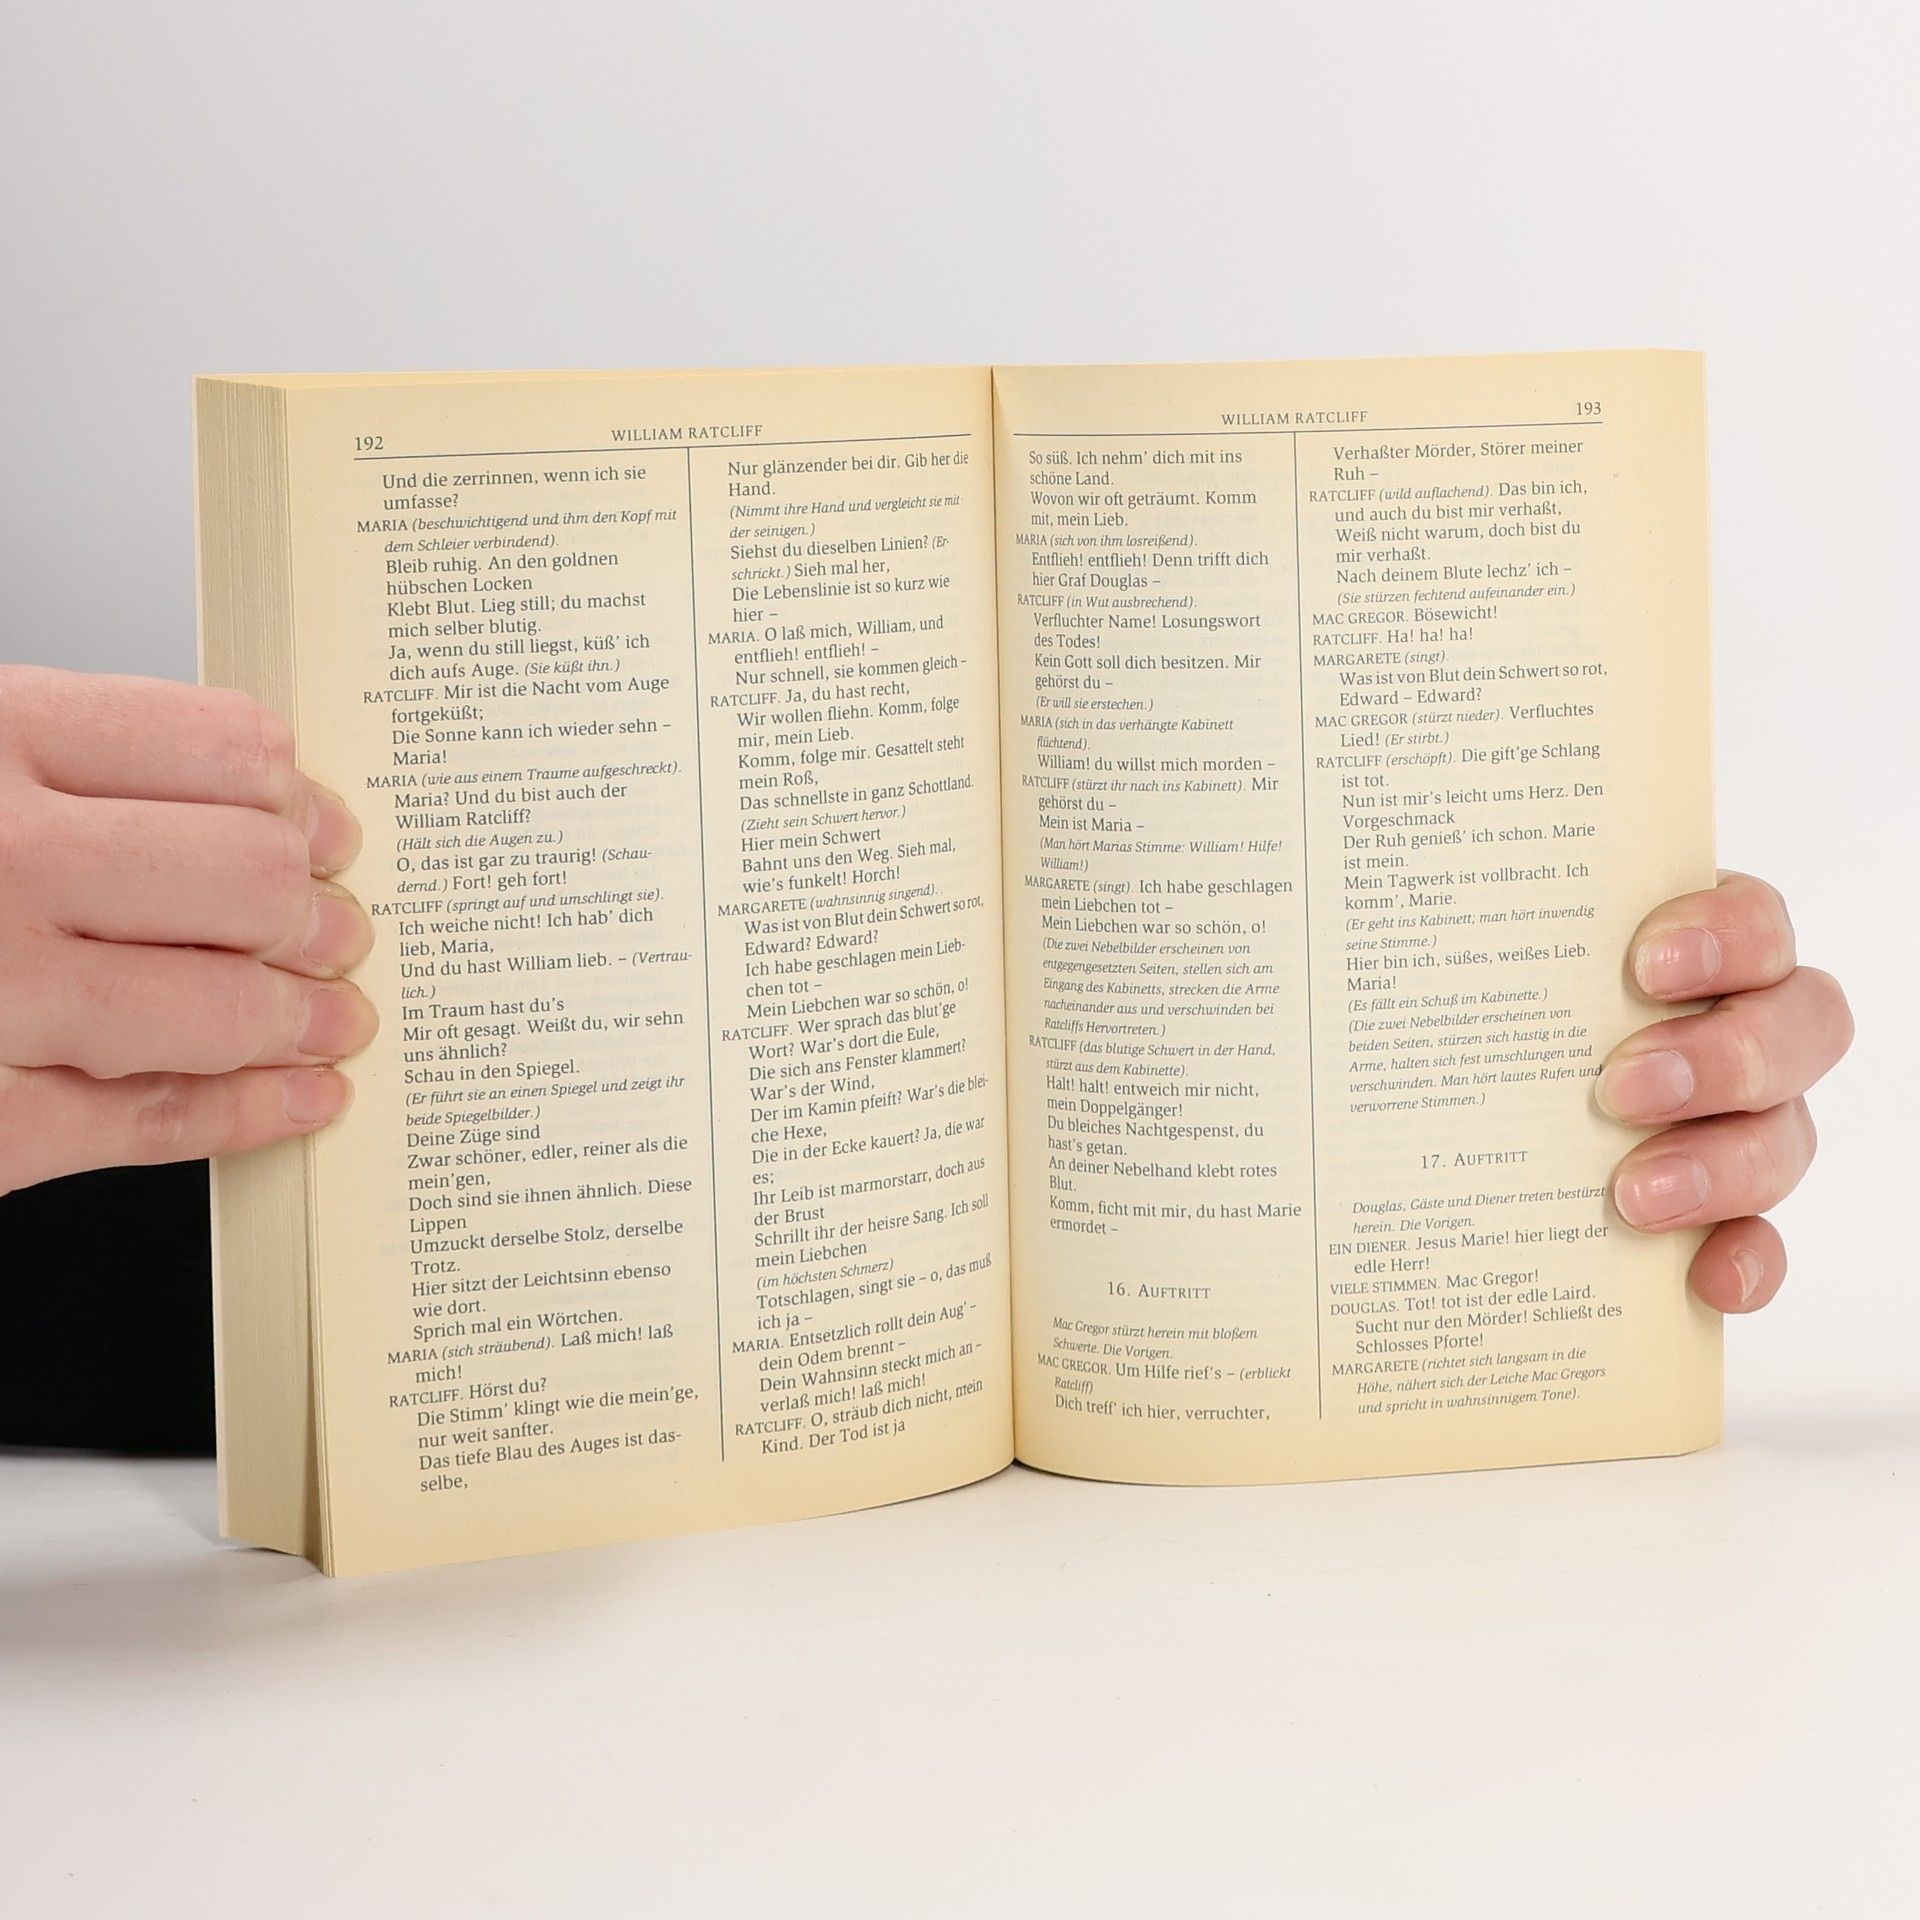 192
WILLIAM RATCLIFF
Und die zerrinnen, wenn ich sie
umfasse?
MARIA (beschwichtigend und ihm den Kopf mit
dem Schleier verbindend).
Bleib ruhig. An den goldnen
hübschen Locken
Klebt Blut. Lieg still; du machst
mich selber blutig.
Ja, wenn du still liegst, küß’ ich
dich aufs Auge. (Sie küßt ihn.)
RATCLIFF. Mir ist die Nacht vom Auge
fortgeküßt;
Die Sonne kann ich wieder sehn –
Maria!
MARIA (wie aus einem Traume aufgeschreckt).
Maria? Und du bist auch der
William Ratcliff?
(Hält sich die Augen zu.)
O, das ist gar zu traurig! (Schau-
dernd.) Fort! geh fort!
RATCLIFF (springt auf und umschlingt sie).
Ich weiche nicht! Ich hab’ dich
lieb, Maria,
Und du hast William lieb. – (Vertrau-
lich.)
Im Traum hast du’s
Mir oft gesagt. Weißt du, wir sehn
uns ähnlich?
Schau in den Spiegel.
(Er führt sie an einen Spiegel und zeigt ihr
beide Spiegelbilder.)
Deine Züge sind
Zwar schöner, edler, reiner als die
mein’gen,
Doch sind sie ihnen ähnlich. Diese
Lippen
Umzuckt derselbe Stolz, derselbe
Trotz.
Hier sitzt der Leichtsinn ebenso
wie dort.
Sprich mal ein Wörtchen.
MARIA (sich sträubend). Laß mich! laß
mich!
RATCLIFF. Hörst du?
Die Stimm’ klingt wie die mein’ge,
nur weit sanfter.
Das tiefe Blau des Auges ist das-
selbe,
Nur glänzender bei dir. Gib her die
Hand.
(Nimmt ihre Hand und vergleicht sie mit
der seinigen.)
Siehst du dieselben Linien? (Er-
schrickt.) Sieh mal her,
Die Lebenslinie ist so kurz wie
hier –
MARIA. O laß mich, William, und
entflieh! entflieh! –
Nur schnell, sie kommen gleich –
RATCLIFF. Ja, du hast recht,
Wir wollen fliehn. Komm, folge
mir, mein Lieb.
Komm, folge mir. Gesattelt steht
mein Roß,
Das schnellste in ganz Schottland.
(Zieht sein Schwert hervor.)
Hier mein Schwert
Bahnt uns den Weg. Sieh mal,
wie’s funkelt! Horch!
MARGARETE (wahnsinnig singend).
Was ist von Blut dein Schwert so rot,
Edward? Edward?
Ich habe geschlagen mein Lieb-
chen tot –
Mein Liebchen war so schön, o!
RATCLIFF. Wer sprach das blut’ge
Wort? War’s dort die Eule,
Die sich ans Fenster klammert?
War’s der Wind,
Der im Kamin pfeift? War’s die blei-
che Hexe,
Die in der Ecke kauert? Ja, die war
es;
Ihr Leib ist marmorstarr, doch aus
der Brust
Schrillt ihr der heisre Sang. Ich soll
mein Liebchen
(im höchsten Schmerz)
Totschlagen, singt sie – o, das muß
ich ja –
MARIA. Entsetzlich rollt dein Aug’ –
dein Odem brennt –
Dein Wahnsinn steckt mich an –
verlaß mich! laß mich!
RATCLIFF. O, sträub dich nicht, mein
Kind. Der Tod ist ja
WILLIAM RATCLIFF
193
So süß. Ich nehm’ dich mit ins
schöne Land.
Wovon wir oft geträumt. Komm
mit, mein Lieb.
MARIA (sich von ihm losreißend).
Entflieh! entflieh! Denn trifft dich
hier Graf Douglas –
RATCLIFF (in Wut ausbrechend).
Verfluchter Name! Losungswort
des Todes!
Kein Gott soll dich besitzen. Mir
gehörst du –
(Er will sie erstechen.)
MARIA (sich in das verhängte Kabinett
flüchtend).
William! du willst mich morden –
RATCLIFF (stürzt ihr nach ins Kabinett). Mir
gehörst du –
Mein ist Maria –
(Man hört Marias Stimme: William! Hilfe!
William!)
MARGARETE (singt). Ich habe geschlagen
mein Liebchen tot –
Mein Liebchen war so schön, o!
(Die zwei Nebelbilder erscheinen von
entgegengesetzten Seiten, stellen sich am
Eingang des Kabinetts, strecken die Arme
nacheinander aus und verschwinden bei
Ratcliffs Hervortreten.)
RATCLIFF (das blutige Schwert in der Hand,
stürzt aus dem Kabinette).
Halt! halt! entweich mir nicht,
mein Doppelgänger!
Du bleiches Nachtgespenst, du
hast’s getan.
An deiner Nebelhand klebt rotes
Blut.
Komm, ficht mit mir, du hast Marie
ermordet –
16. AUFTRITT
Mac Gregor stürzt herein mit bloßem
Schwerte. Die Vorigen.
MAC GREGOR. Um Hilfe rief’s – (erblickt
Ratcliff)
Dich treff’ ich hier, verruchter,
Verhaßter Mörder, Störer meiner
Ruh –
RATCLIFF (wild auflachend). Das bin ich,
und auch du bist mir verhaßt,
Weiß nicht warum, doch bist du
mir verhaßt.
Nach deinem Blute lechz’ ich –
(Sie stürzen fechtend aufeinander ein.)
MAC GREGOR. Bösewicht!
RATCLIFF. Ha! ha! ha!
MARGARETE (singt).
Was ist von Blut dein Schwert so rot,
Edward – Edward?
MAC GREGOR (stürzt nieder). Verfluchtes
Lied! (Er stirbt.)
RATCLIFF (erschöpft). Die gift’ge Schlang
ist tot.
Nun ist mir’s leicht ums Herz. Den
Vorgeschmack
Der Ruh genieß’ ich schon. Marie
ist mein.
Mein Tagwerk ist vollbracht. Ich
komm’, Marie.
(Er geht ins Kabinett; man hört inwendig
seine Stimme.)
Hier bin ich, süßes, weißes Lieb.
Maria!
(Es fällt ein Schuß im Kabinette.)
(Die zwei Nebelbilder erscheinen von
beiden Seiten, stürzen sich hastig in die
Arme, halten sich fest umschlungen und
verschwinden. Man hört lautes Rufen und
verworrene Stimmen.)
17. AUFTRITT
Douglas, Gäste und Diener treten bestürzt
herein. Die Vorigen.
EIN DIENER. Jesus Marie! hier liegt der
edle Herr!
VIELE STIMMEN. Mac Gregor!
DOUGLAS. Tot! tot ist der edle Laird.
Sucht nur den Mörder! Schließt des
Schlosses Pforte!
MARGARETE (richtet sich langsam in die
Höhe, nähert sich der Leiche Mac Gregors
und spricht in wahnsinnigem Tone).